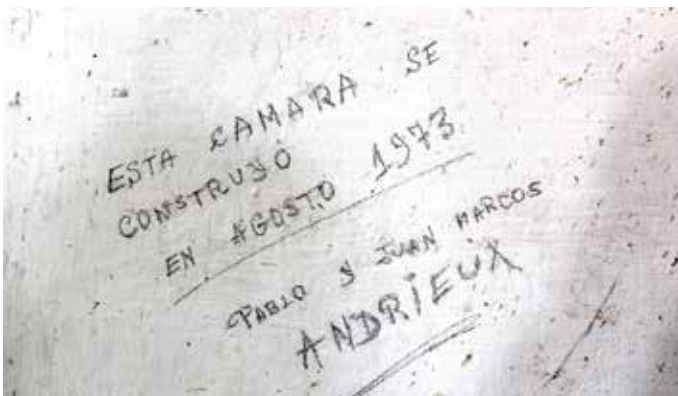 ESTA CAMARA SE
CONSTRUYÓ
EN AGOSTO 1973.
PABLO Y JUAN MARCOS
ANDRIEUX